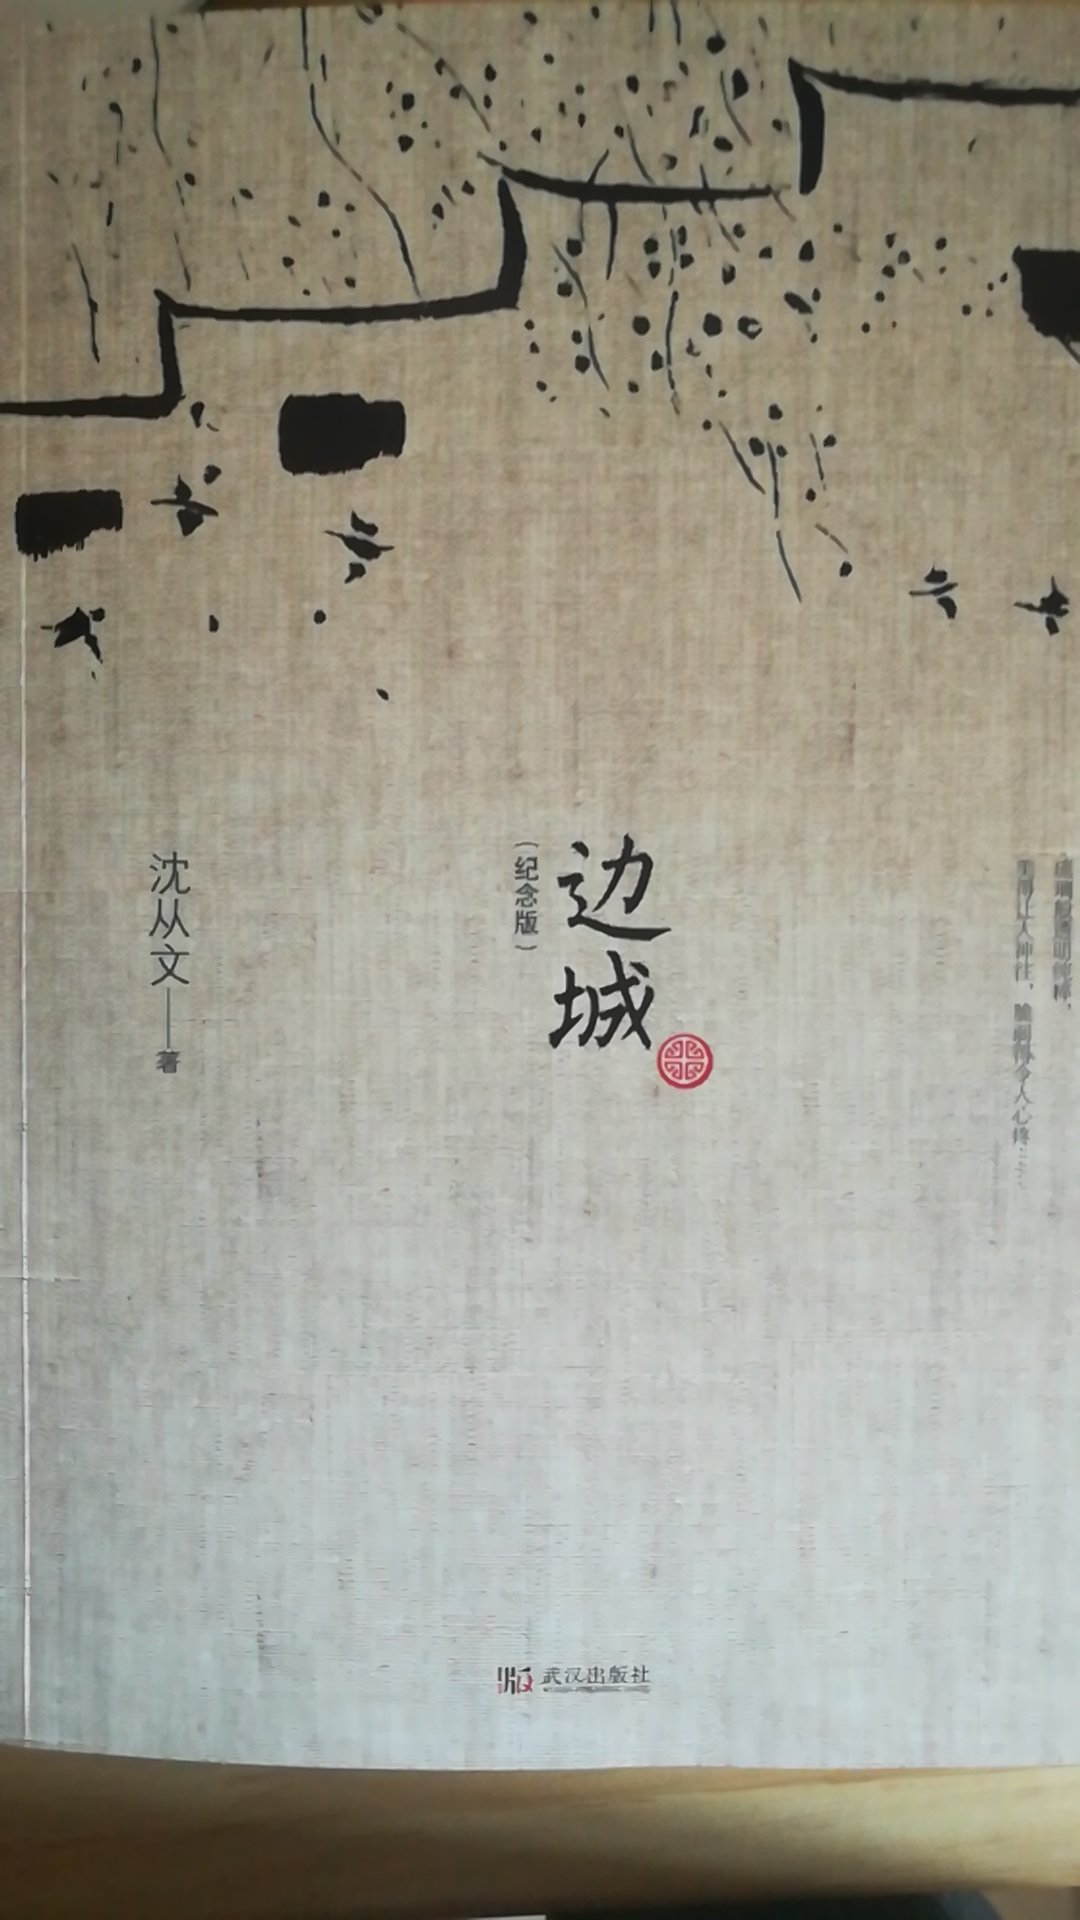 琉璃般透明纯粹，
美丽让人神往，脆弱得令人心疼……
边城
（纪念版）
沈从文——著
武汉出版社